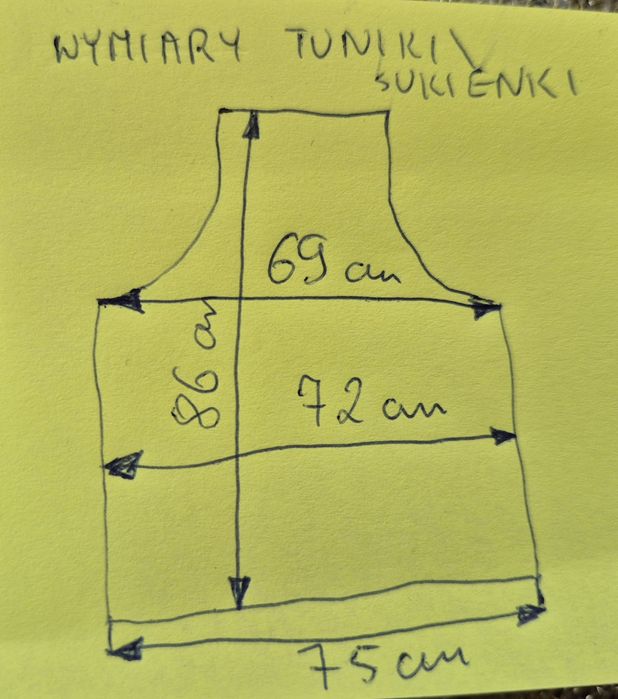 WYMIARY TUNIKI\
SUKIENKI
69 cm
86 cm
72 cm
75 cm